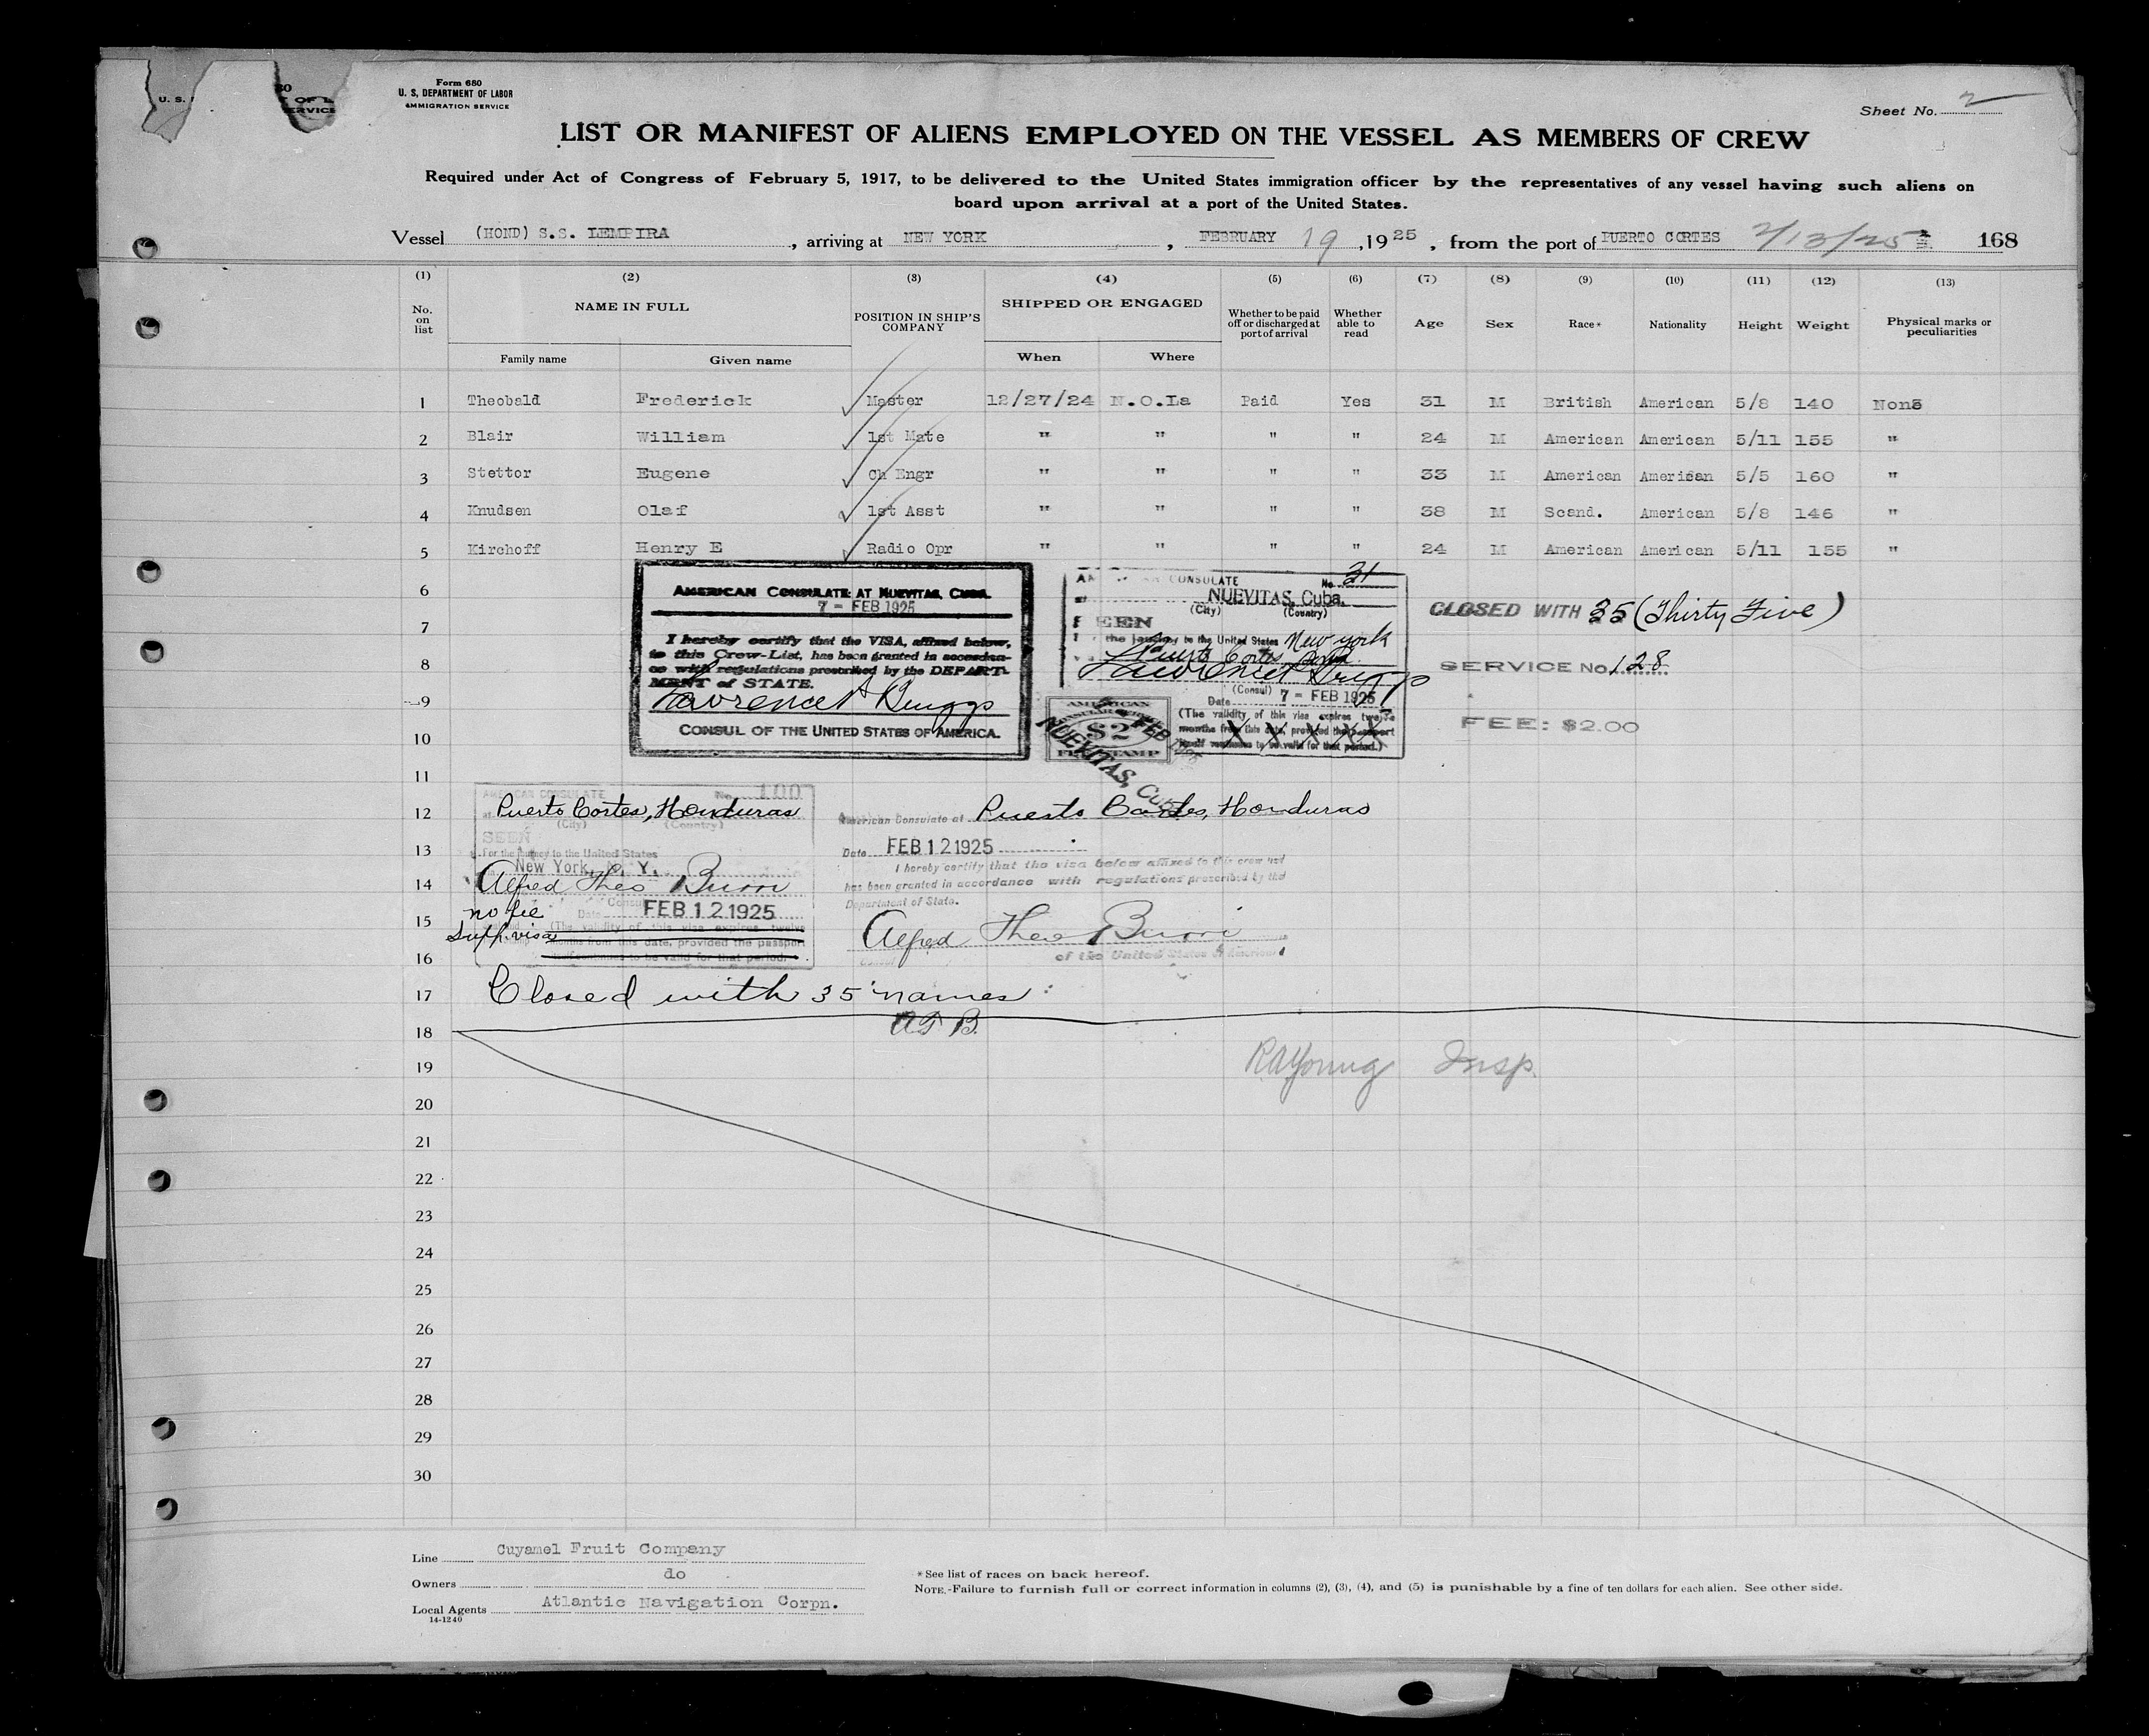 U. S.
Form 680
U. S, DEPARTMENT OF LABOR
IMMIGRATION SERVICE
Sheet No. 2
LIST OR MANIFEST OF ALIENS EMPLOYED ON THE VESSEL AS MEMBERS OF CREW
Required under Act of Congress of February 5, 1917, to be delivered to the United States immigration officer by the representatives of any vessel having such aliens on
board upon arrival at a port of the United States.
Vessel (HOND) S.S. LEMPIRA, arriving at NEW YORK, FEBRUARY 19, 1925, from the port of PUERTO CORTES 2/13/25 168
(1) (2) (3) (4) (5) (6) (7) (8) (9) (10) (11) (12) (13)
No. on list NAME IN FULL POSITION IN SHIP'S COMPANY SHIPPED OR ENGAGED Whether to be paid off or discharged at port of arrival Whether able to read Age Sex Race* Nationality Height Weight Physical marks or peculiarities
Family name Given name When Where
1 Theobald Frederick Master 12/27/24 N.O.La Paid Yes 31 M British American 5/8 140 None
2 Blair William 1st Mate " " " " 24 M American American 5/11 155 "
3 Stettor Eugene Ch Engr " " " " 33 M American American 5/5 160 "
4 Knudsen Olaf 1st Asst " " " " 38 M Scand. American 5/8 146 "
5 Kirchoff Henry E Radio Opr " " " " 24 M American American 5/11 155 "
6
7
8
9
10
11
12
13
14
15
16
17
18
19
20
21
22
23
24
25
26
27
28
29
30
AMERICAN CONSULATE AT NUEVITAS, CUBA.
7 - FEB 1925
I hereby certify that the VISA, affixed below,
to this Crew-List, has been granted in accordan-
ce with regulations prescribed by the DEPART-
MENT of STATE.
CONSUL OF THE UNITED STATES OF AMERICA.
CONSULATE No. 31
NUEVITAS, Cuba.
(City) (Country)
to the United States New York
Puerto Cortes
(Consul) 7 - FEB 1925
Date
(The validity of this visa expires twelve
months from this date, provided the passport
itself continues to be valid for that period.)
AMERICAN
$2
FEE STAMP
NUEVITAS, CUBA
CLOSED WITH 35 (Thirty Five)
SERVICE No. 128
FEE: $2.00
AMERICAN CONSULATE No. 100
at Puerto Cortes, Honduras
(City) (Country)
SEEN
For the journey to the United States
New York, N. Y.
Alfred Theo Burri
Consul
no fee
Date FEB 12 1925
Supp. visa
(The validity of this visa expires twelve
months from this date, provided the passport
itself continues to be valid for that period.)
American Consulate at Puerto Cortes, Honduras
Date FEB 12 1925
I hereby certify that the visa below affixed to this crew list
has been granted in accordance with regulations prescribed by the
Department of State.
Alfred Theo Burri
Consul of the United States of America
Closed with 35 names
A T B.
RA Young Insp.
Line Cuyamel Fruit Company
Owners do
Local Agents Atlantic Navigation Corpn.
14-1240
*See list of races on back hereof.
NOTE.-Failure to furnish full or correct information in columns (2), (3), (4), and (5) is punishable by a fine of ten dollars for each alien. See other side.